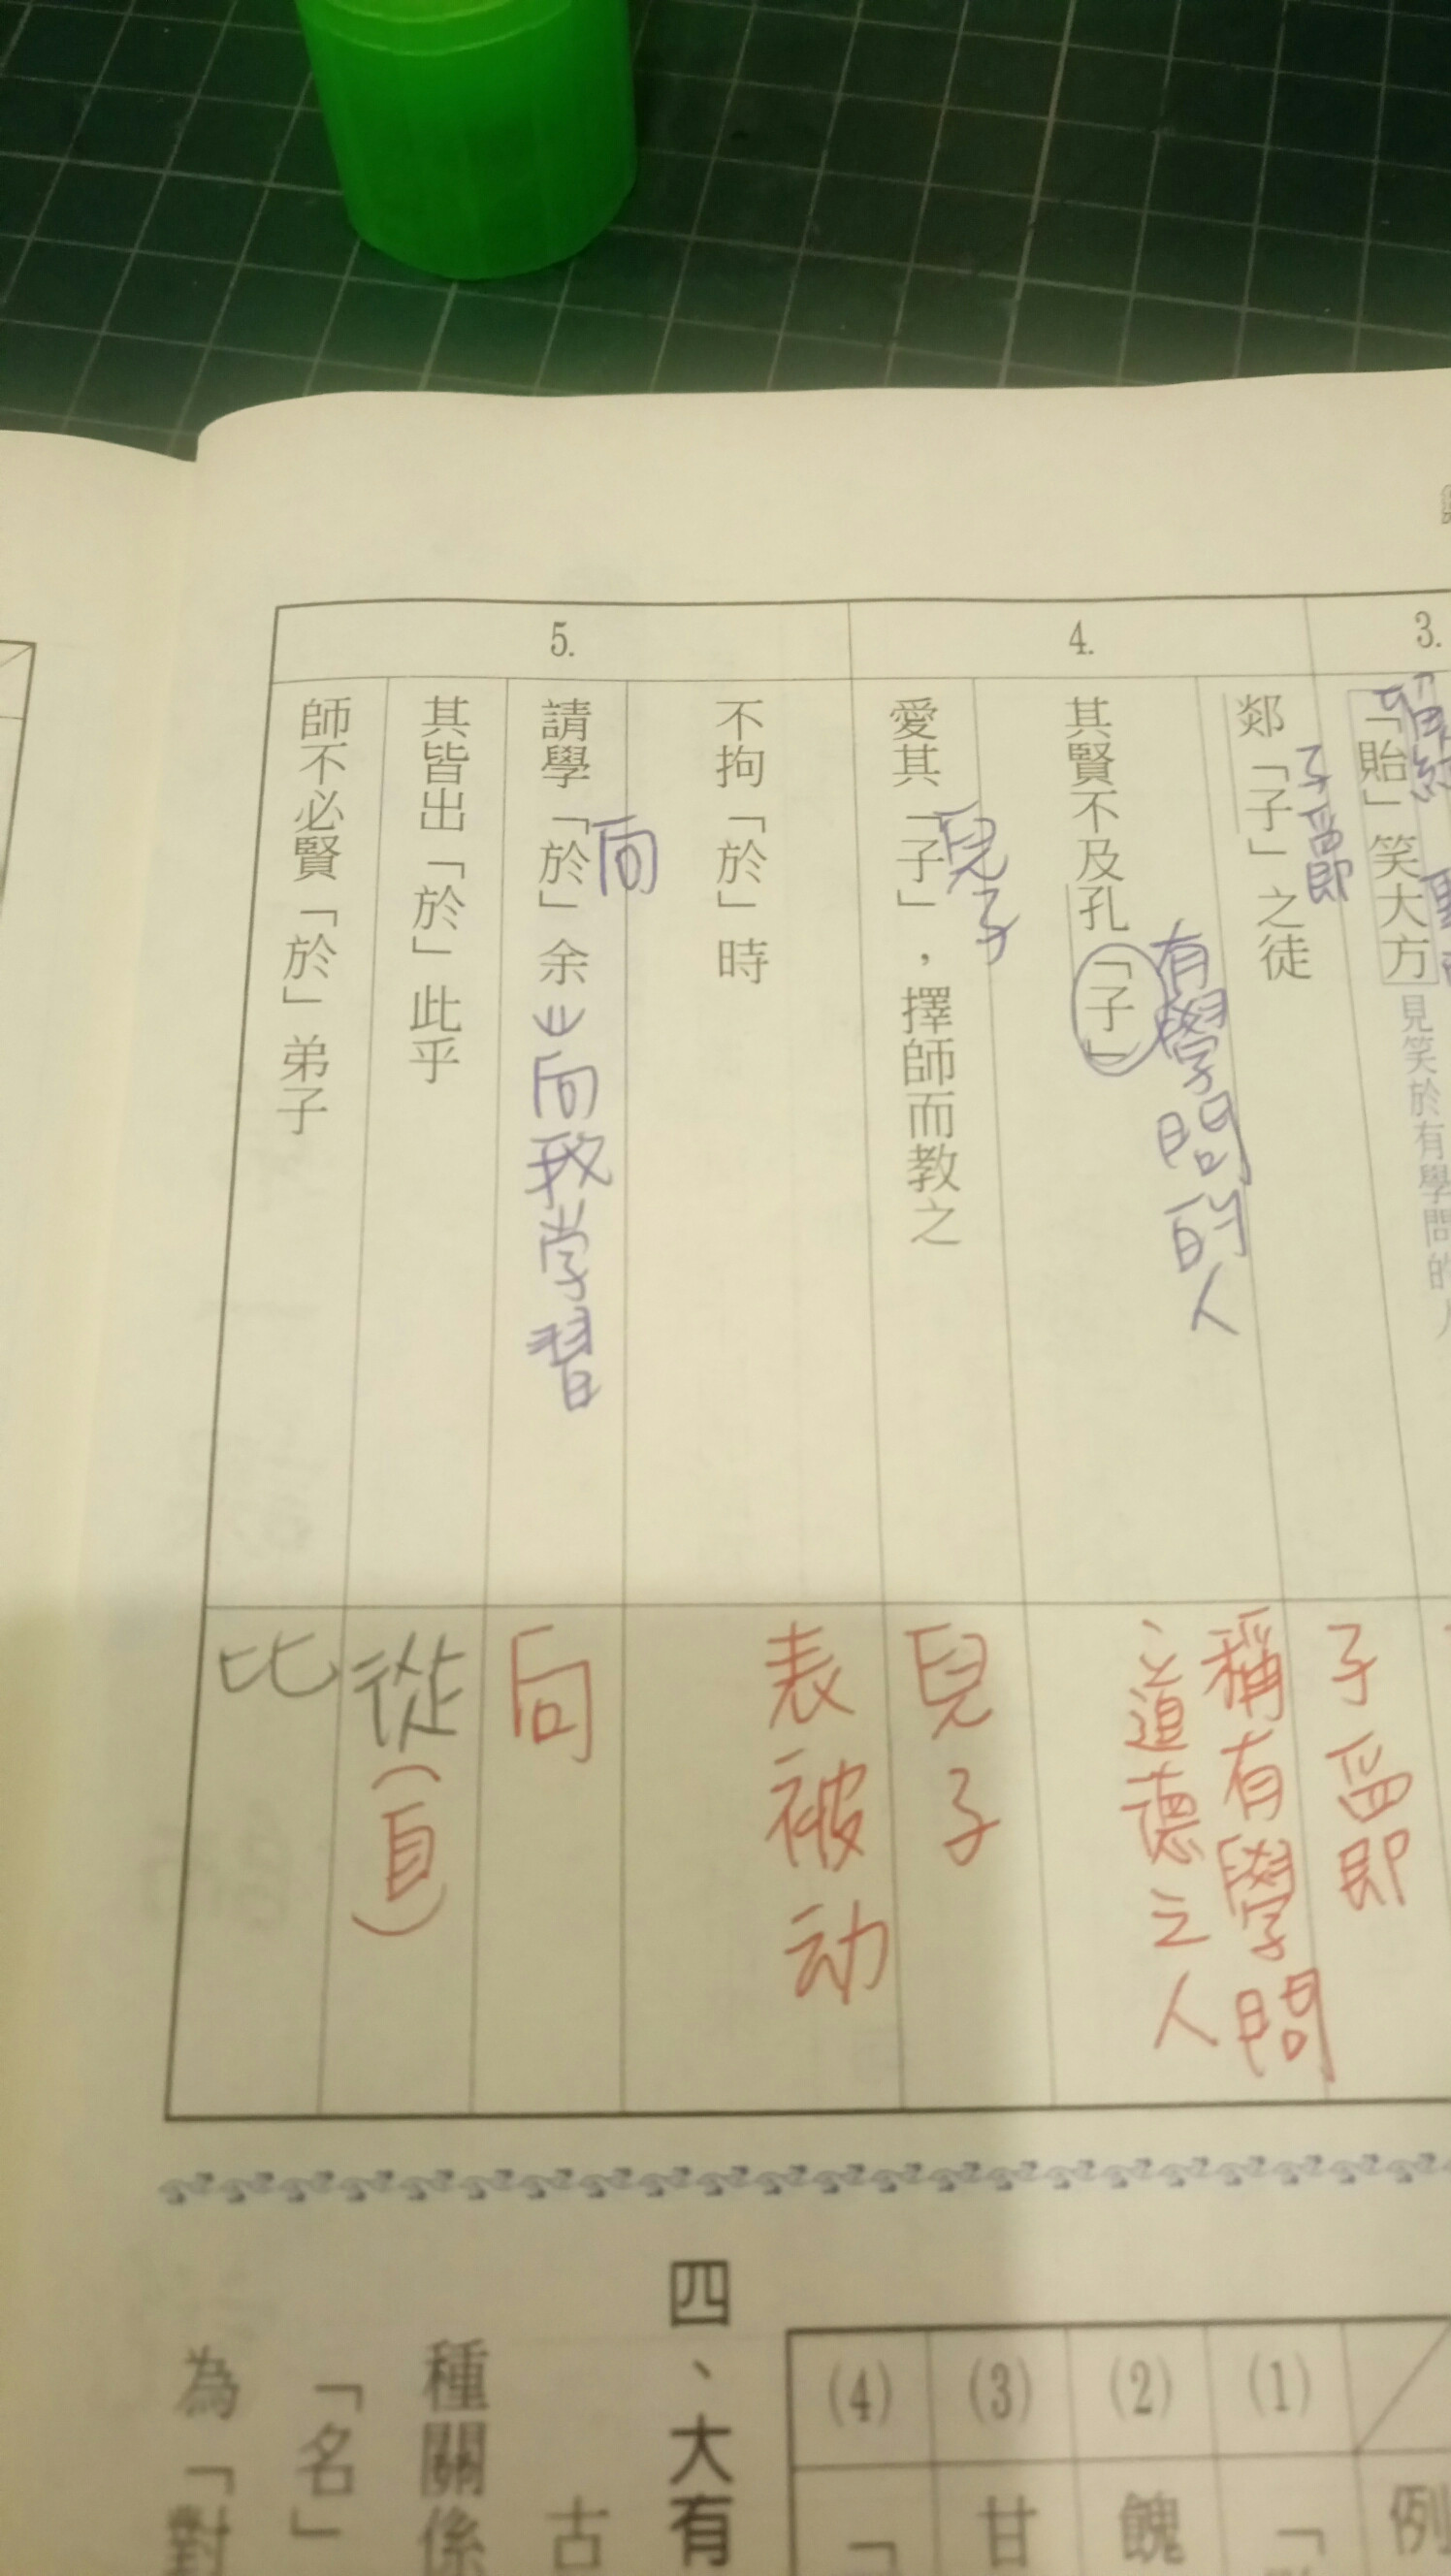 3.
「貽」笑大方
見笑於有學問的
4.
郯「子」之徒
子爵
子爵
其賢不及孔「子」
有學問的人
稱有學問
之道德之人
愛其「子」，擇師而教之
兒子
兒子
5.
不拘「於」時
表被动
請學「於」余
向
⇒向我学習
向
其皆出「於」此乎
從(自)
師不必賢「於」弟子
比
例
(1)
「
(2)
餽
(3)
甘
(4)
「
四、大有
古
種關係
「名」
為「對